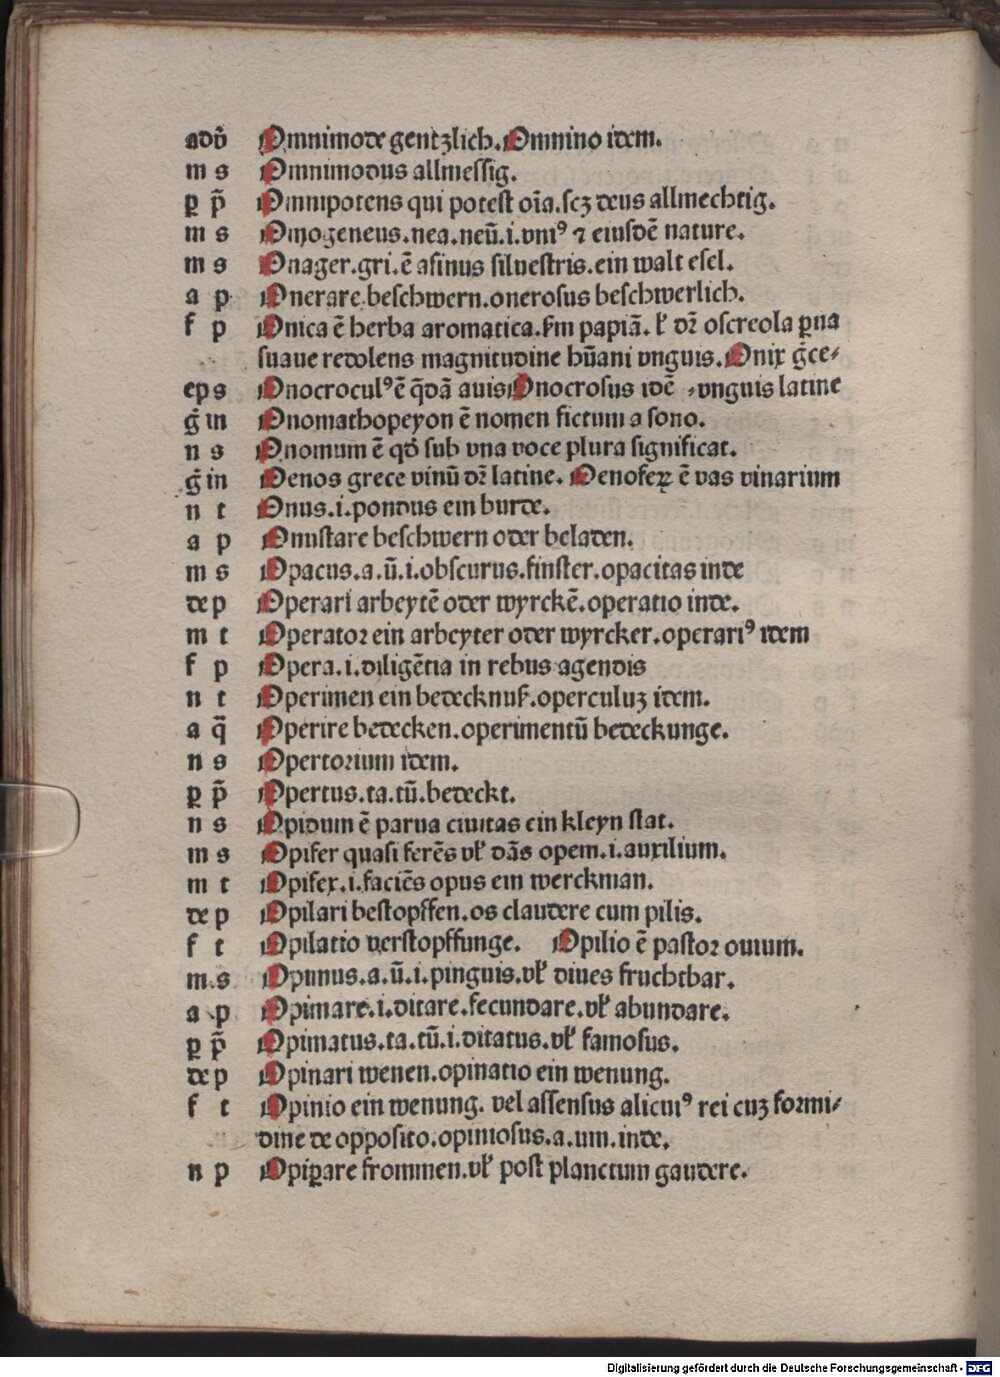 adv̄ Omnimode gentzlich. Omnino idem.
m s Omnimodus allmessig.
ꝑ p̄ Omnipotens qui potest oīa. scz deus allmechtig.
m s Omogeneus. nea. neū. i. vniꝰ ⁊ eiusdē nature.
m s Onager. gri. ē asinus siluestris. ein walt esel.
a p Onerare beschwern. onerosus beschwerlich.
f p Onica ē herba aromatica. ẜm papiā. ł dr̄ oscreola ꝑua
suaue redolens magnitudine hūani vnguis. Onix g̊ce⸗
ep s Onocroculꝰ ē q̄dā auis Onocrosus idē ⸗vnguis latine
g̊ in Onomathopeyon ē nomen fictum a sono.
n s Onomum ē qd̓ sub vna voce plura significat.
g̊ in Oenos grece vinū dr̄ latine. Oenofeꝝ ē vas vinarium
n t Onus. i. pondus ein burde.
a p Onustare beschwern oder beladen.
m s Opacus. a. ū. i. obscurus. finster. opacitas inde
de p Operari arbeytē oder wyrckē. operatio inde.
m t Operator ein arbeyter oder wyrcker. operariꝰ idem
f p Opera. i. diligētia in rebus agendis
n t Operimen ein bedecknuß. operculuz idem.
a q̄ Operire bedecken. operimentū bedeckunge.
n s Opertorium idem.
ꝑ p̄ Opertus. ta. tū. bedeckt.
n s Opidum ē parua ciuitas ein kleyn stat.
m s Opifer quasi ferēs vł dās opem. i. auxilium.
m t Opifex. i. faciēs opus ein werckman.
de p Opilari bestopffen. os claudere cum pilis.
f t Opilatio verstopffunge. Opilio ē pastor ouium.
m s Opimus. a. ū. i. pinguis. vł diues fruchtbar.
a p Opimare. i. ditare. fecundare. vł abundare.
ꝑ p̄ Opimatus. ta. tū. i. ditatus. vł famosus.
de p Opinari wenen. opinatio ein wenung.
f t Opinio ein wenung. vel assensus alicuiꝰ rei cuz formi⸗
dine de opposito. opiniosus. a. um. inde.
n p Opiꝑare frommen. vł post planctum gaudere.
Digitalisierung gefördert durch die Deutsche Forschungsgemeinschaft - DFG